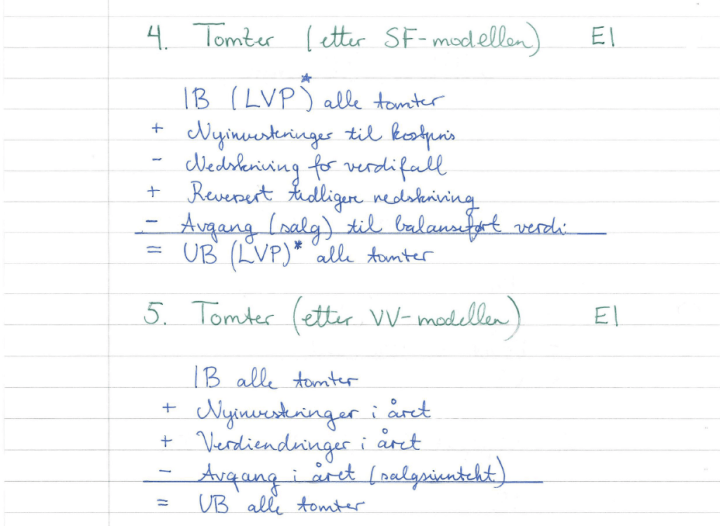 4. Tomter (etter SF-modellen) EI
IB (LVP)* alle tomter
+ Nyinvesteringer til kostpris
- Nedskriving for verdifall
+ Reversert tidligere nedskriving
- Avgang (salg) til balanseført verdi
= UB (LVP)* alle tomter
5. Tomter (etter VV-modellen) EI
IB alle tomter
+ Nyinvesteringer i året
+ Verdiendringer i året
- Avgang i året (salgsinntekt)
= UB alle tomter